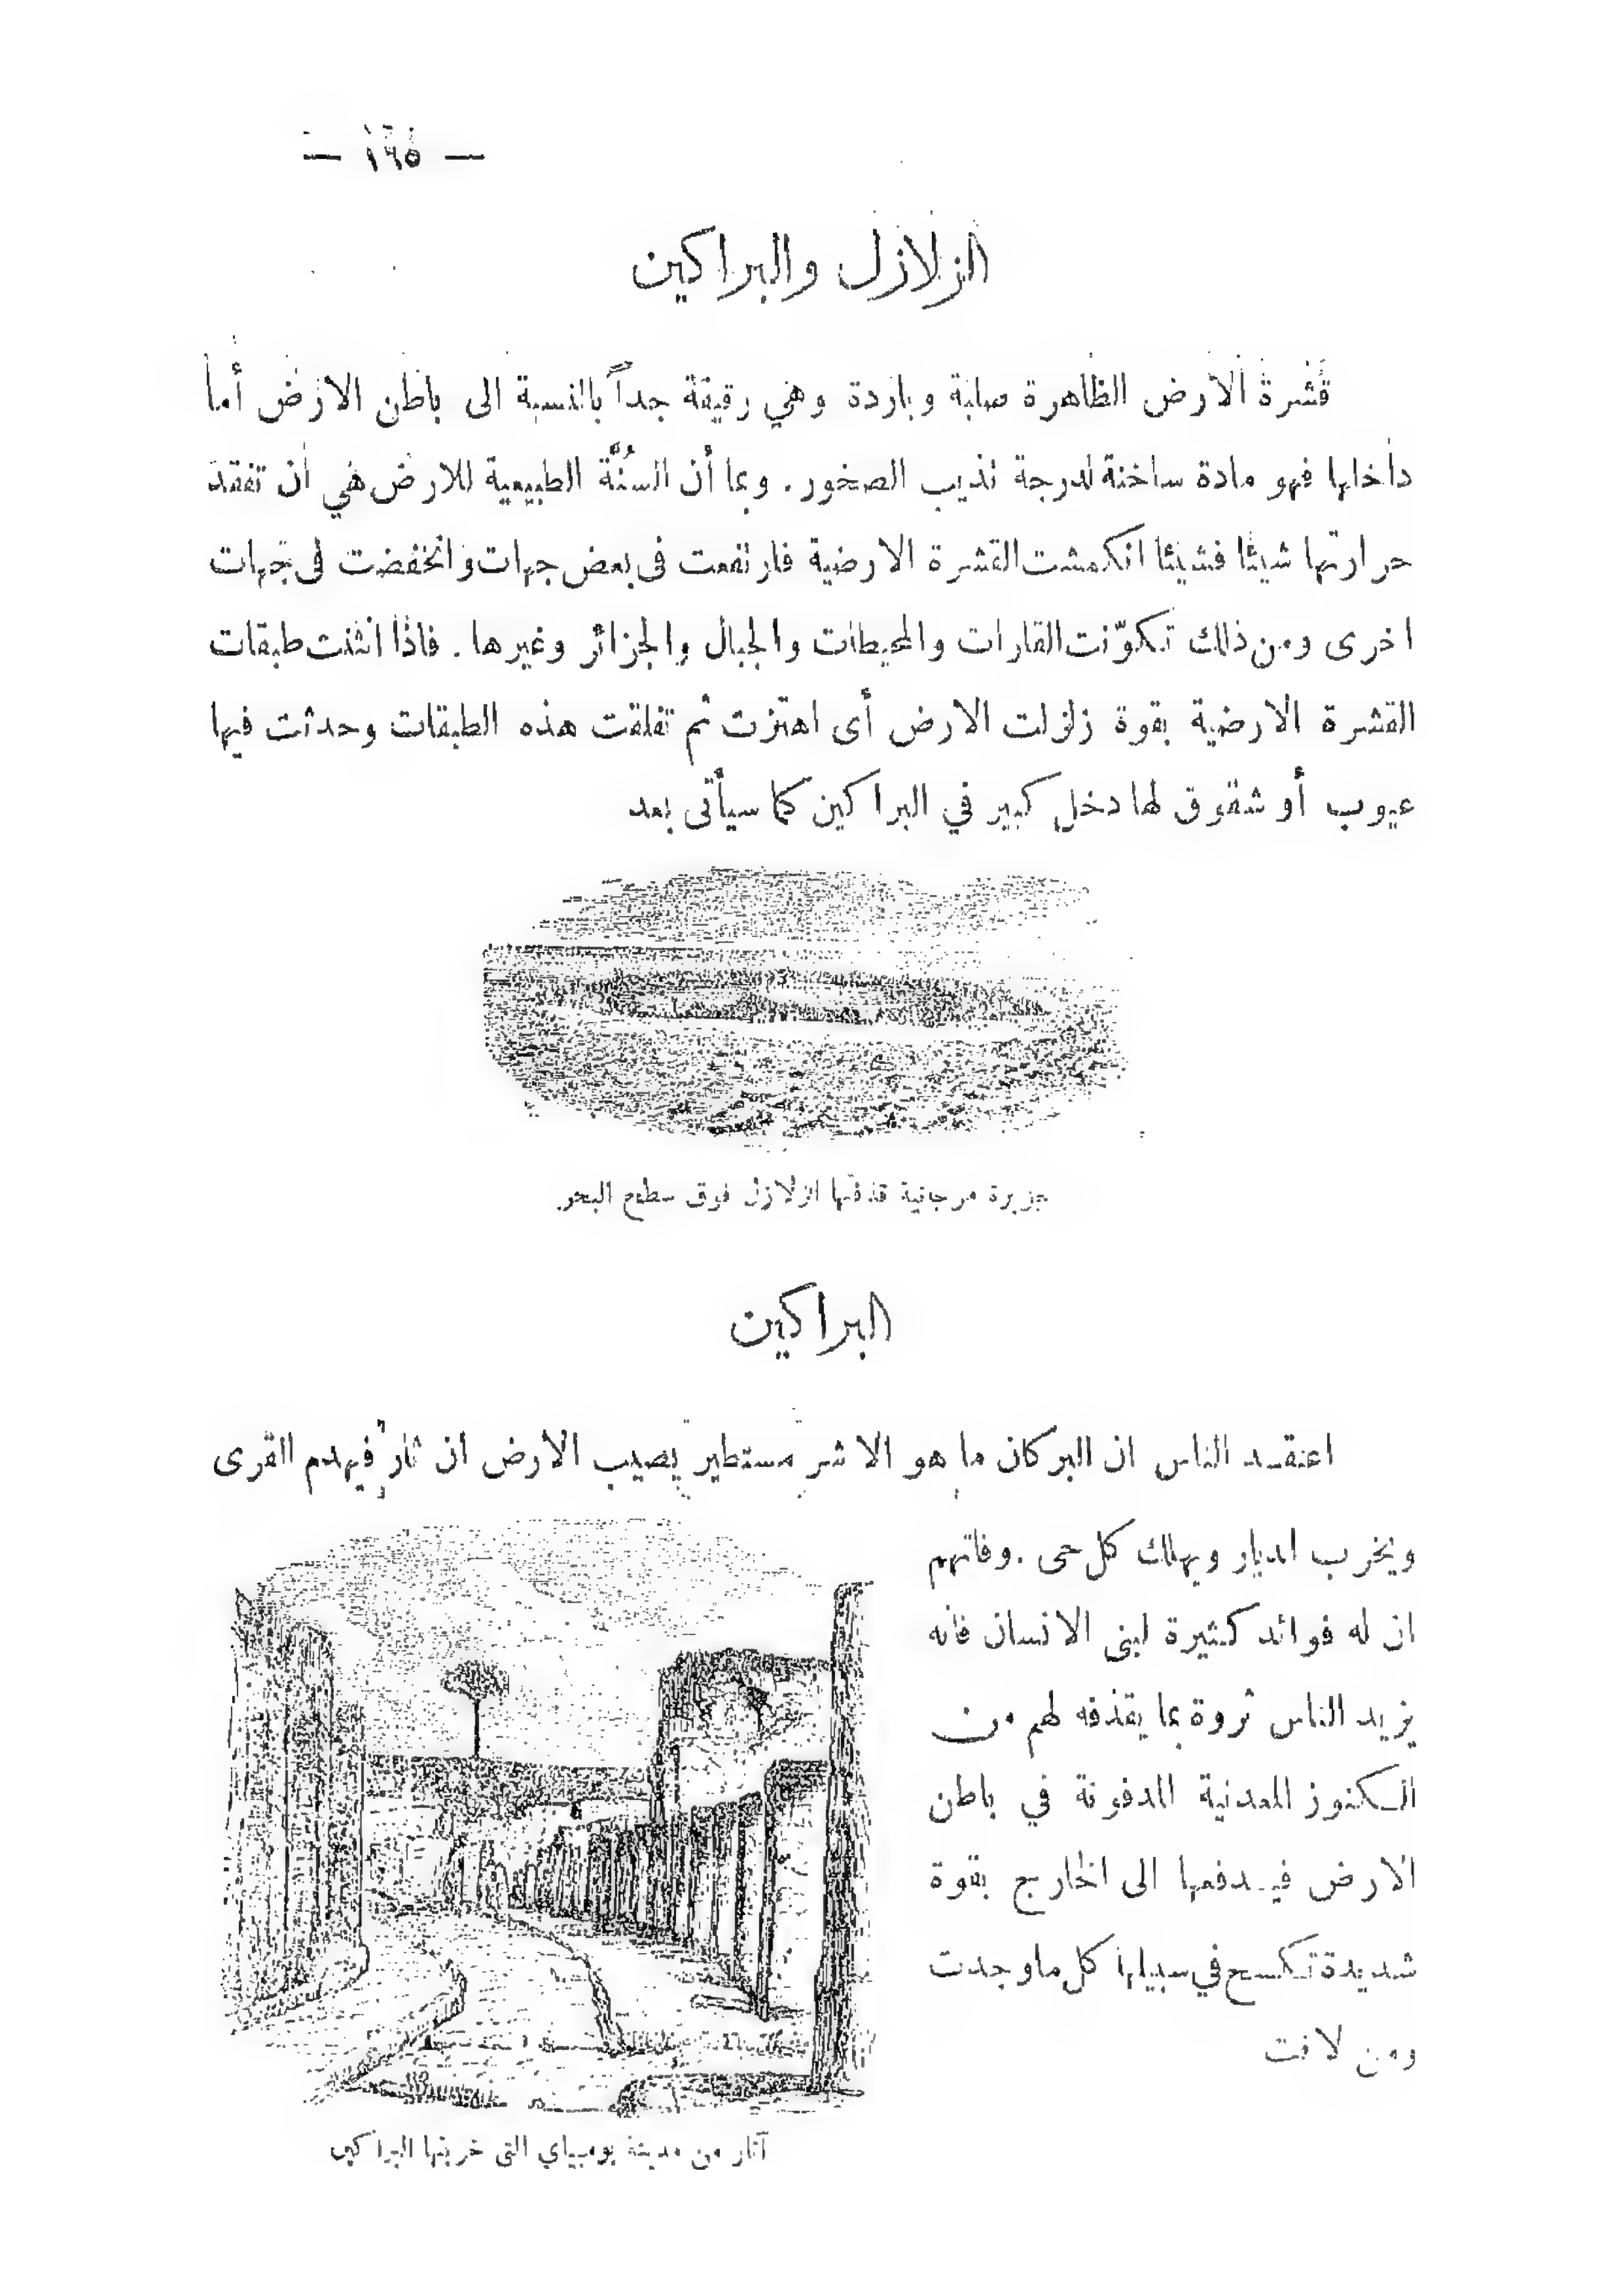 — ١٦٥ —
الزلازل والبراكين
قشرة الارض الظاهرة صلبة وباردة وهي رقيقة جداً بالنسبة الى باطن الارض أما
داخلها فهو مادة ساخنة لدرجة تذيب الصخور. وبما أن السُنَّة الطبيعية للارض هي ان تفقد
حرارتها شيئا فشيئا انكمشت القشرة الارضية فارتفعت فى بعض جهات وانخفضت فى جهات
اخرى ومن ذلك تكوّنت القارات والمحيطات والجبال والجزائر وغيرها. فاذا انثنت طبقات
القشرة الارضية بقوة زلزلت الارض أى اهتزت ثم تفلقت هذه الطبقات وحدثت فيها
عيوب أو شقوق لها دخل كبير في البراكين كما سيأتى بعد
جزيرة مرجانية قذفتها الزلازل فوق سطح البحر.
البراكين
اعتقد الناس ان البركان ما هو الا شر مستطير يصيب الأرض ان ثار فيهدم القرى
ويخرب الديار ويهلك كل حى. وفاتهم
ان له فوائد كثيرة لبنى الانسان فانه
يزيد الناس ثروة بما يقذفه لهم من
الكنوز المعدنية المدفونة في باطن
الارض فيدفعها الى الخارج بقوة
شديدة تكسح في سبيلها كل ما وجدت
ومن لافت
آثار من مدينة بومبياي التى خربتها البراكين